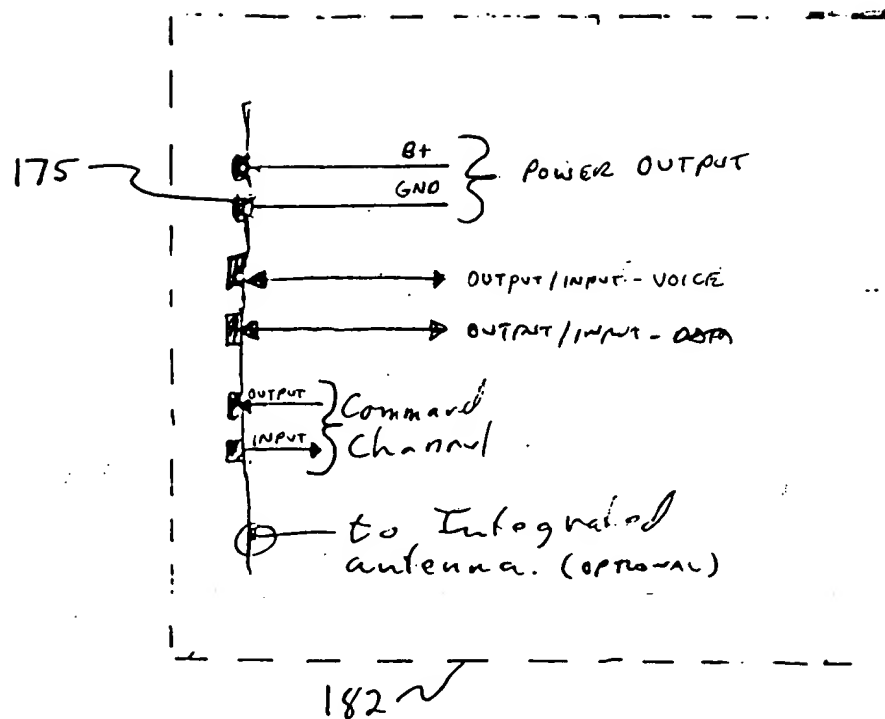 B+
175
GND
POWER OUTPUT
OUTPUT/INPUT - VOICE
OUTPUT/INPUT - DATA
OUTPUT
INPUT
Command
Channel
to Integrated
antenna. (OPTIONAL)
182